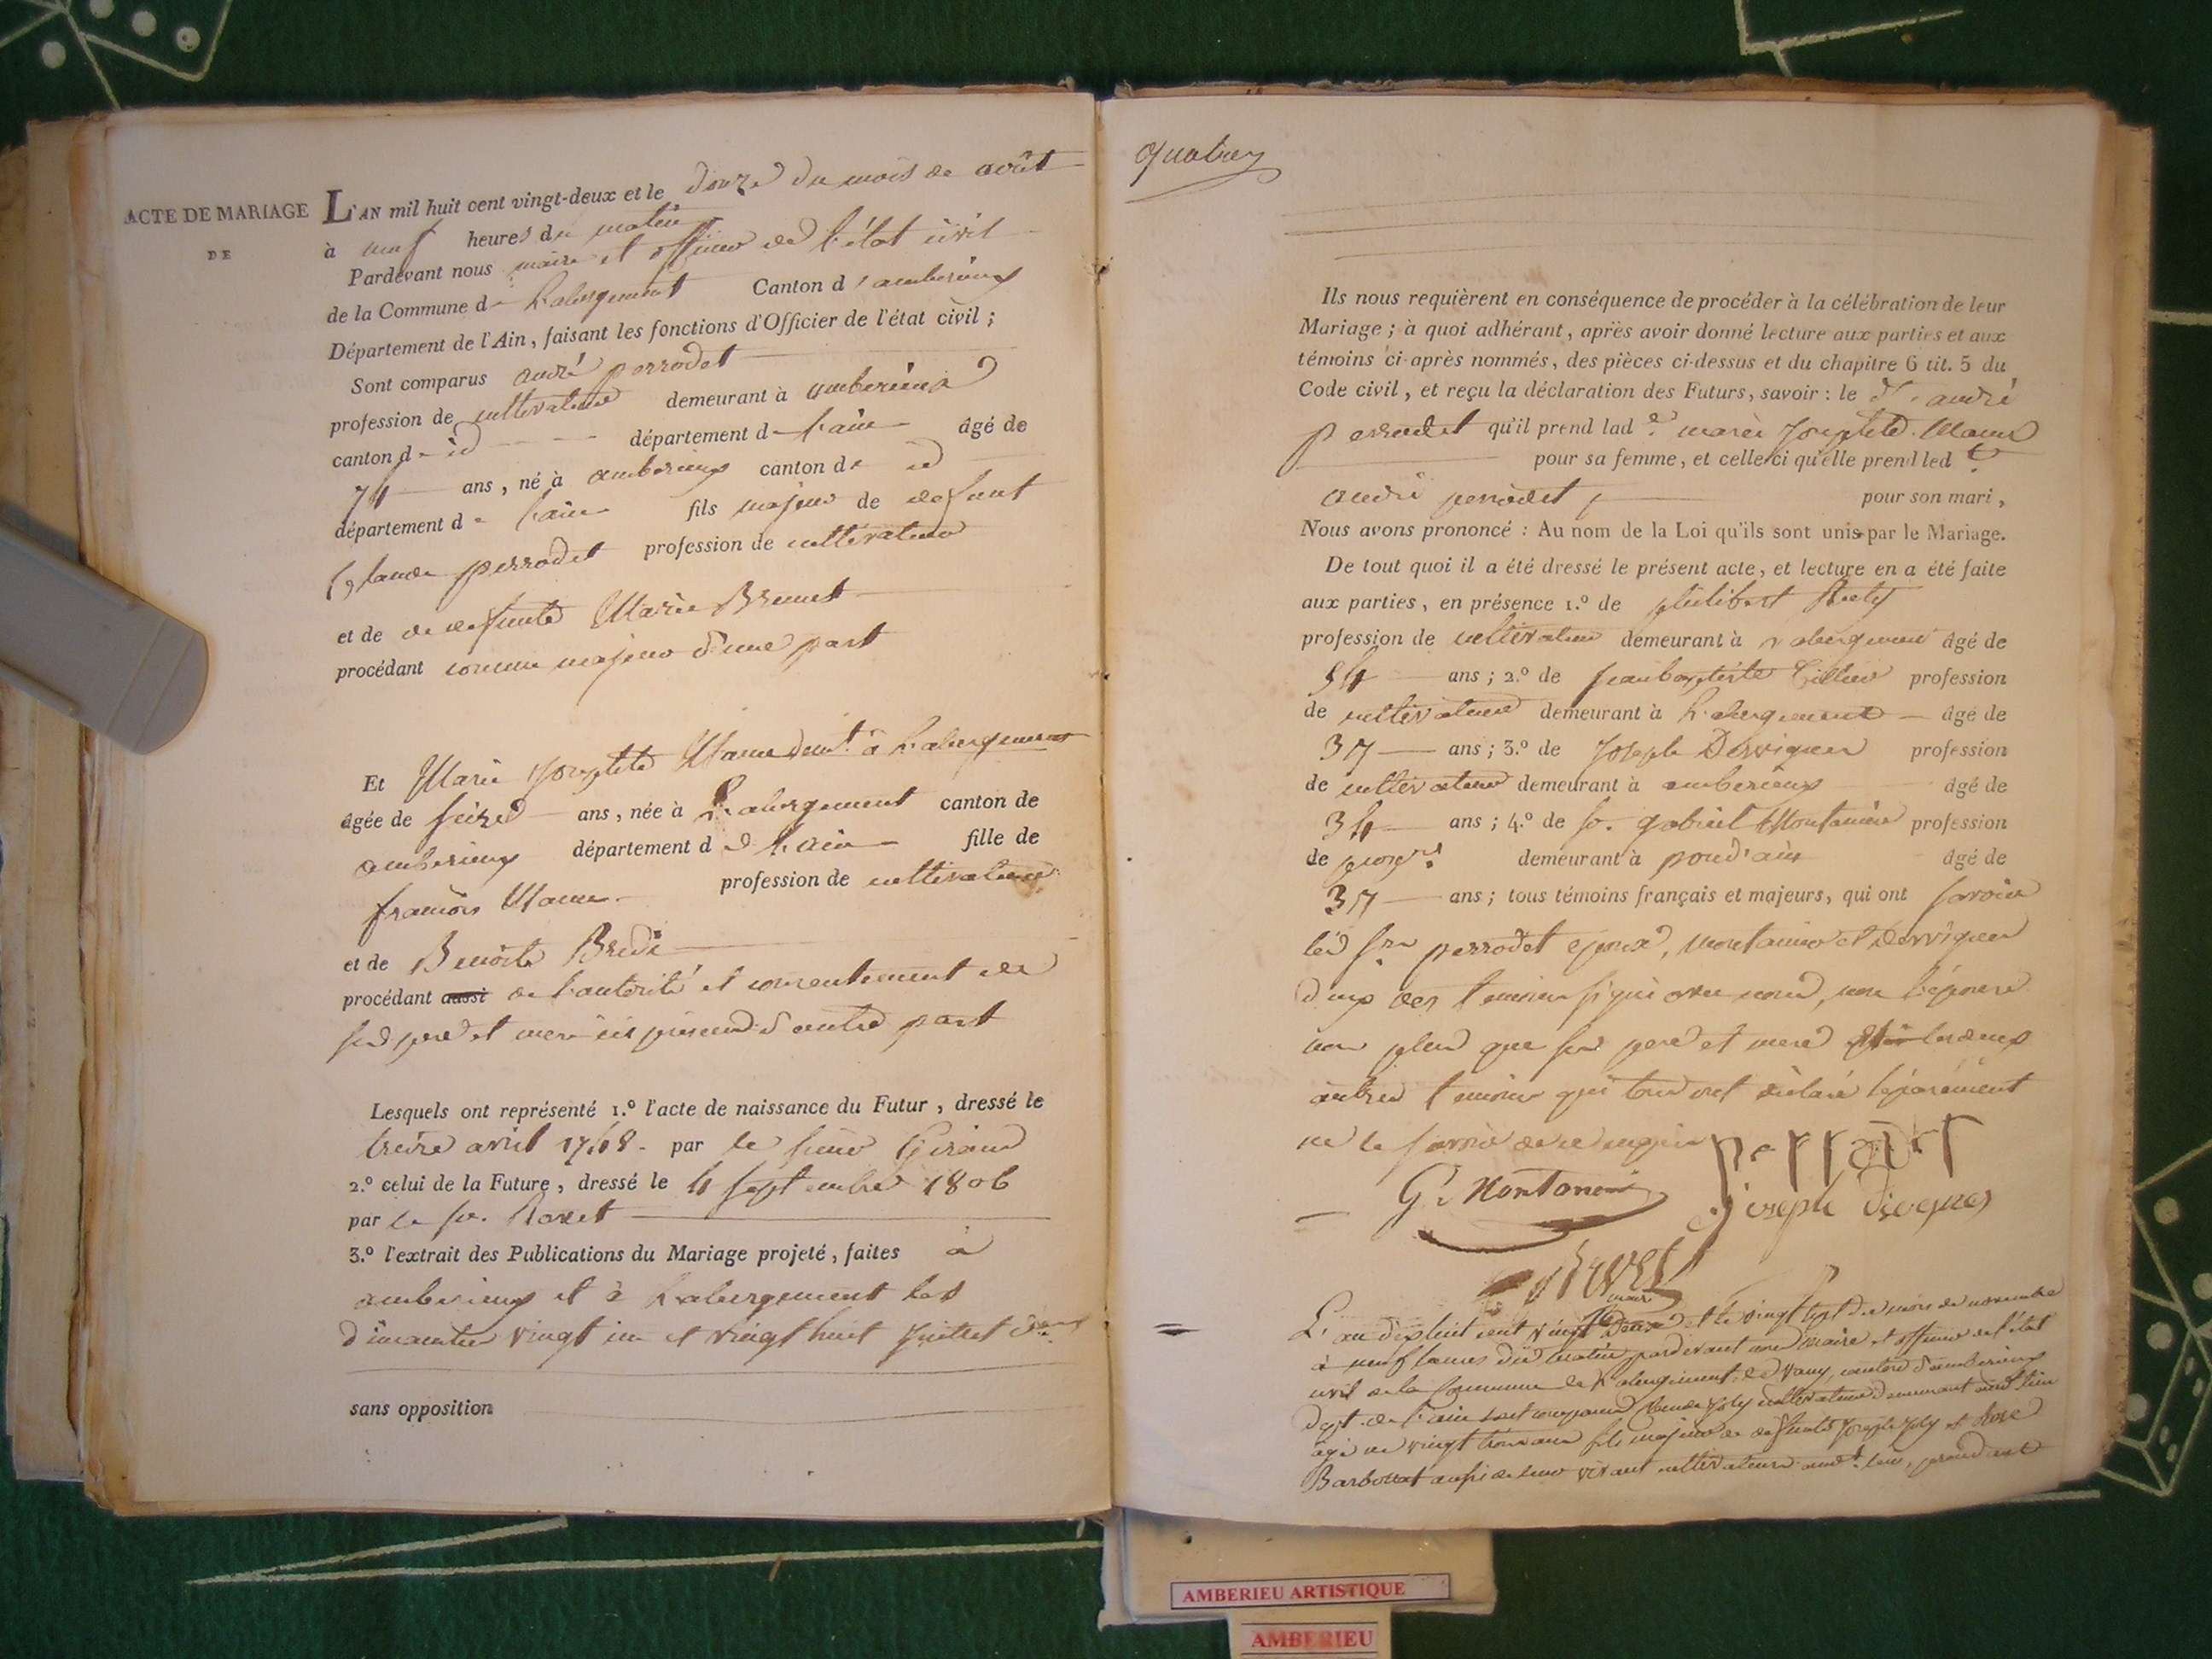 ACTE DE MARIAGE
DE
L'AN mil huit cent vingt-deux et le douze du mois de août
à neuf heures du matin
Pardevant nous maire et officier de l'état civil
de la Commune de L'abergement Canton d'amberieux
Département de l'Ain, faisant les fonctions d'Officier de l'état civil ;
Sont comparus andré perrodet
profession de cultivateur demeurant à amberieux
canton d id département de l'ain âgé de
74 ans, né à amberieux canton de id
département de l'ain fils majeur de defunt
Claude perrodet profession de cultivateur
et de de defunte Marie Brunet
procédant comme majeur d'une part
Et Marie Josephte Mame demt. à L'abergement
âgée de seize ans, née à L'abergement canton de
amberieux département de l'ain fille de
francois Mame profession de cultivateur
et de Benoite Bredi
procédant aussi de l'autorité et consentement de
ses pere et mere ici présents d'autre part
Lesquels ont représenté 1.º l'acte de naissance du Futur, dressé le
treize avril 1748 par le sieur Giraud
2.º celui de la Future, dressé le 4 septembre 1806
par le sr. Ravet
3.º l'extrait des Publications du Mariage projeté, faites à
amberieux et à L'abergement les
dimanches vingt un et vingt huit juillet
sans opposition
quatre
Ils nous requièrent en conséquence de procéder à la célébration de leur
Mariage ; à quoi adhérant, après avoir donné lecture aux parties et aux
témoins ci-après nommés, des pièces ci-dessus et du chapitre 6 tit. 5 du
Code civil, et reçu la déclaration des Futurs, savoir : le d. andré
perrodet qu'il prend lad e. marie Josephte Mame
pour sa femme, et celle-ci qu'elle prend led t.
andré perrodet, pour son mari,
Nous avons prononcé : Au nom de la Loi qu'ils sont unis par le Mariage.
De tout quoi il a été dressé le présent acte, et lecture en a été faite
aux parties, en présence 1.º de philibert
profession de cultivateur demeurant à L'abergement âgé de
54 ans ; 2.º de jean baptiste profession
de cultivateur demeurant à L'abergement âgé de
37 ans ; 3.º de Joseph Dervigeux profession
de cultivateur demeurant à amberieux âgé de
34 ans ; 4.º de sr. gabriel Montanier profession
de demeurant à pond'ain âgé de
37 ans ; tous témoins français et majeurs, qui ont savoir
perrodet epoux, montanier et Dervigeux
deux des temoins signé avec nous, non l'epouse
non plus que ses pere et mere les deux
autres temoins qui tous ont déclaré séparément
ne le savoir de ce enquis
perrodet
G. Montanier
joseph
RAVET
maire
L'an dix huit cent vingt Deux et le vingt sept du mois de novembre
à neuf heures du matin pardevant nous maire et officier de l'état
civil de la Commune de L'abergement de Varey, canton d'amberieux
dept. de l'ain sont comparus Joly cultivateur demeurant aud. lieu
âgé de vingt trois ans fils majeur de defunts Joseph Joly et Rose
Barbollat aussi de leur vivant cultivateurs audt. lieu,
AMBERIEU ARTISTIQUE
AMBERIEU